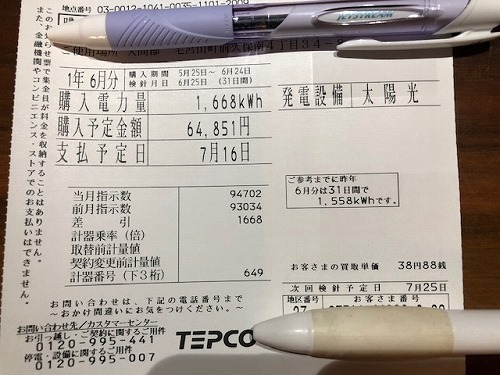 地点番号 03-0012-1061-0035-1101-2009
JETSTREAM
1年 6月分 購入期間 5月25日～ 6月24日
検針月日 6月25日 (31日間)
購入電力量 1,668kWh
発電設備 太陽光
購入予定金額 64,851円
支払予定日 7月16日
当月指示数 94702
前月指示数 93034
差引 1668
計器乗率（倍）
取替前計量値
契約変更前計量値
計器番号（下3桁） 649
ご参考までに昨年
6月分は31日間で
1,558kWhです。
お客さまの買取単価 38円88銭
次回検針予定日 7月25日
地区番号 お客さま番号
お問い合わせは、下記の電話番号まで
～おかけ間違いにお気をつけください。～
お問い合わせ先／カスタマーセンター
お引っ越し・ご契約に関するご用件
0120-995-441
停電・設備に関するご用件
0120-995-007
TEPCO
このお知らせ票で集金員が料金を収納することはありません。
また、金融機関やコンビニエンス・ストアでのお支払いはできません。